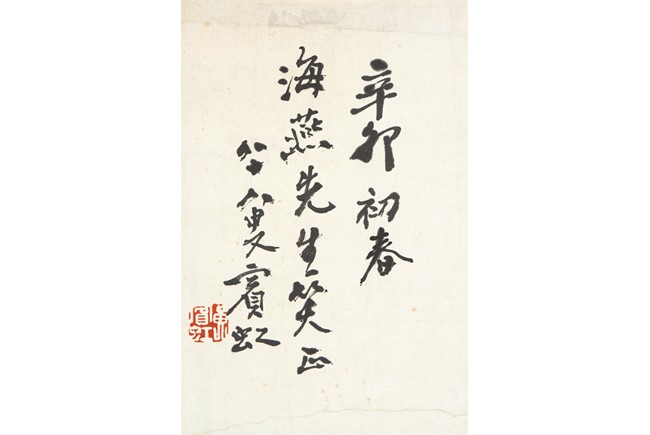 辛卯初春
海燕先生笑正
八十八叟賓虹
黄賓虹